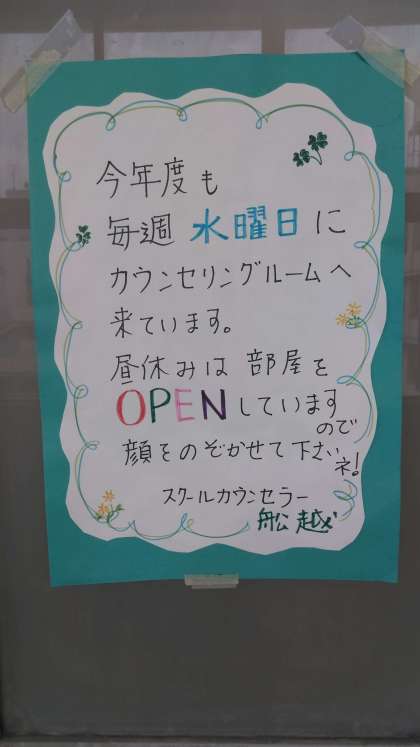 今年度も
毎週 水曜日に
カウンセリングルームへ
来ています。
昼休みは 部屋を
OPENしています
ので
顔をのぞかせて下さいネ!
スクールカウンセラー
舩越